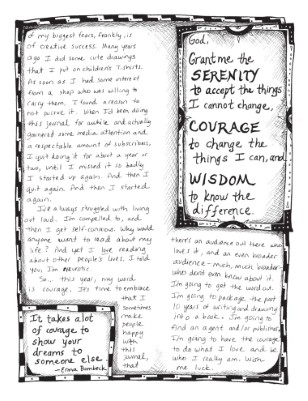 of my biggest fears, frankly, is
of creative success. Many years
ago I did some cute drawings
that I put on children's T-shirts.
As soon as I had some interest
from a shop who was willing to
carry them, I found a reason to
not pursue it. When I'd been doing
this journal for awhile and actually
garnered some media attention and
a respectable amount of subscribers,
I quit doing it for about a year or
two, until I missed it so badly
I started up again. And then I
quit again. And then I started
again.
I've always struggled with living
out loud. I'm compelled to, and
then I get self-conscious. Why would
anyone want to read about my
life? And yet I love reading
about other people's lives. I told
you I'm neurotic.
So... this year, my word
is courage. It's time to embrace
that I
sometimes
make
people
happy
with
this
journal, that
there's an audience out there who
loves it, and an even broader
audience - much, much broader
who don't even know about it.
I'm going to get the word out.
I'm going to package the past
10 years of writing and drawing
into a book. I'm going to
find an agent and/or publisher.
I'm going to have the courage
to do what I love and be
who I really am. Wish
me luck.
God,
Grant me the
SERENITY
to accept the things
I cannot change,
COURAGE
to change the
things I can, and
WISDOM
to know the
difference.
It takes a lot
of courage to
show your
dreams to
someone else
-Erma Bombeck